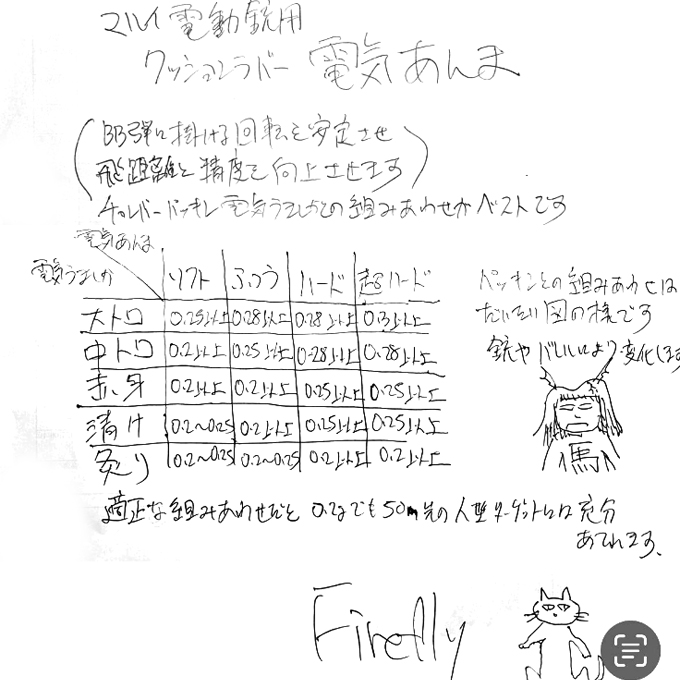 マルイ電動銃用
クッションラバー 電気あんま
(BB弾に掛ける回転を安定させ
飛距離と精度を向上させます)
チャンバーパッキン電気うなじとの組みあわせがベストです
電気あんま
ソフト ふつう ハード 超ハード
大トロ 0.25以上 0.28以上 0.28以上 0.3以上
中トロ 0.2以上 0.25以上 0.28以上 0.28以上
赤身 0.2以上 0.2以上 0.25以上 0.25以上
漬け 0.2~0.25 0.2以上 0.25以上 0.25以上
炙り 0.2~0.25 0.2~0.25 0.2以上 0.2以上
パッキンとの組みあわせは
だいたい図の様です
銃やバレルにより変化します
馬
適正な組みあわせだと 0.2gでも50m先の人型ターゲットには充分
あてれます、
Firefly